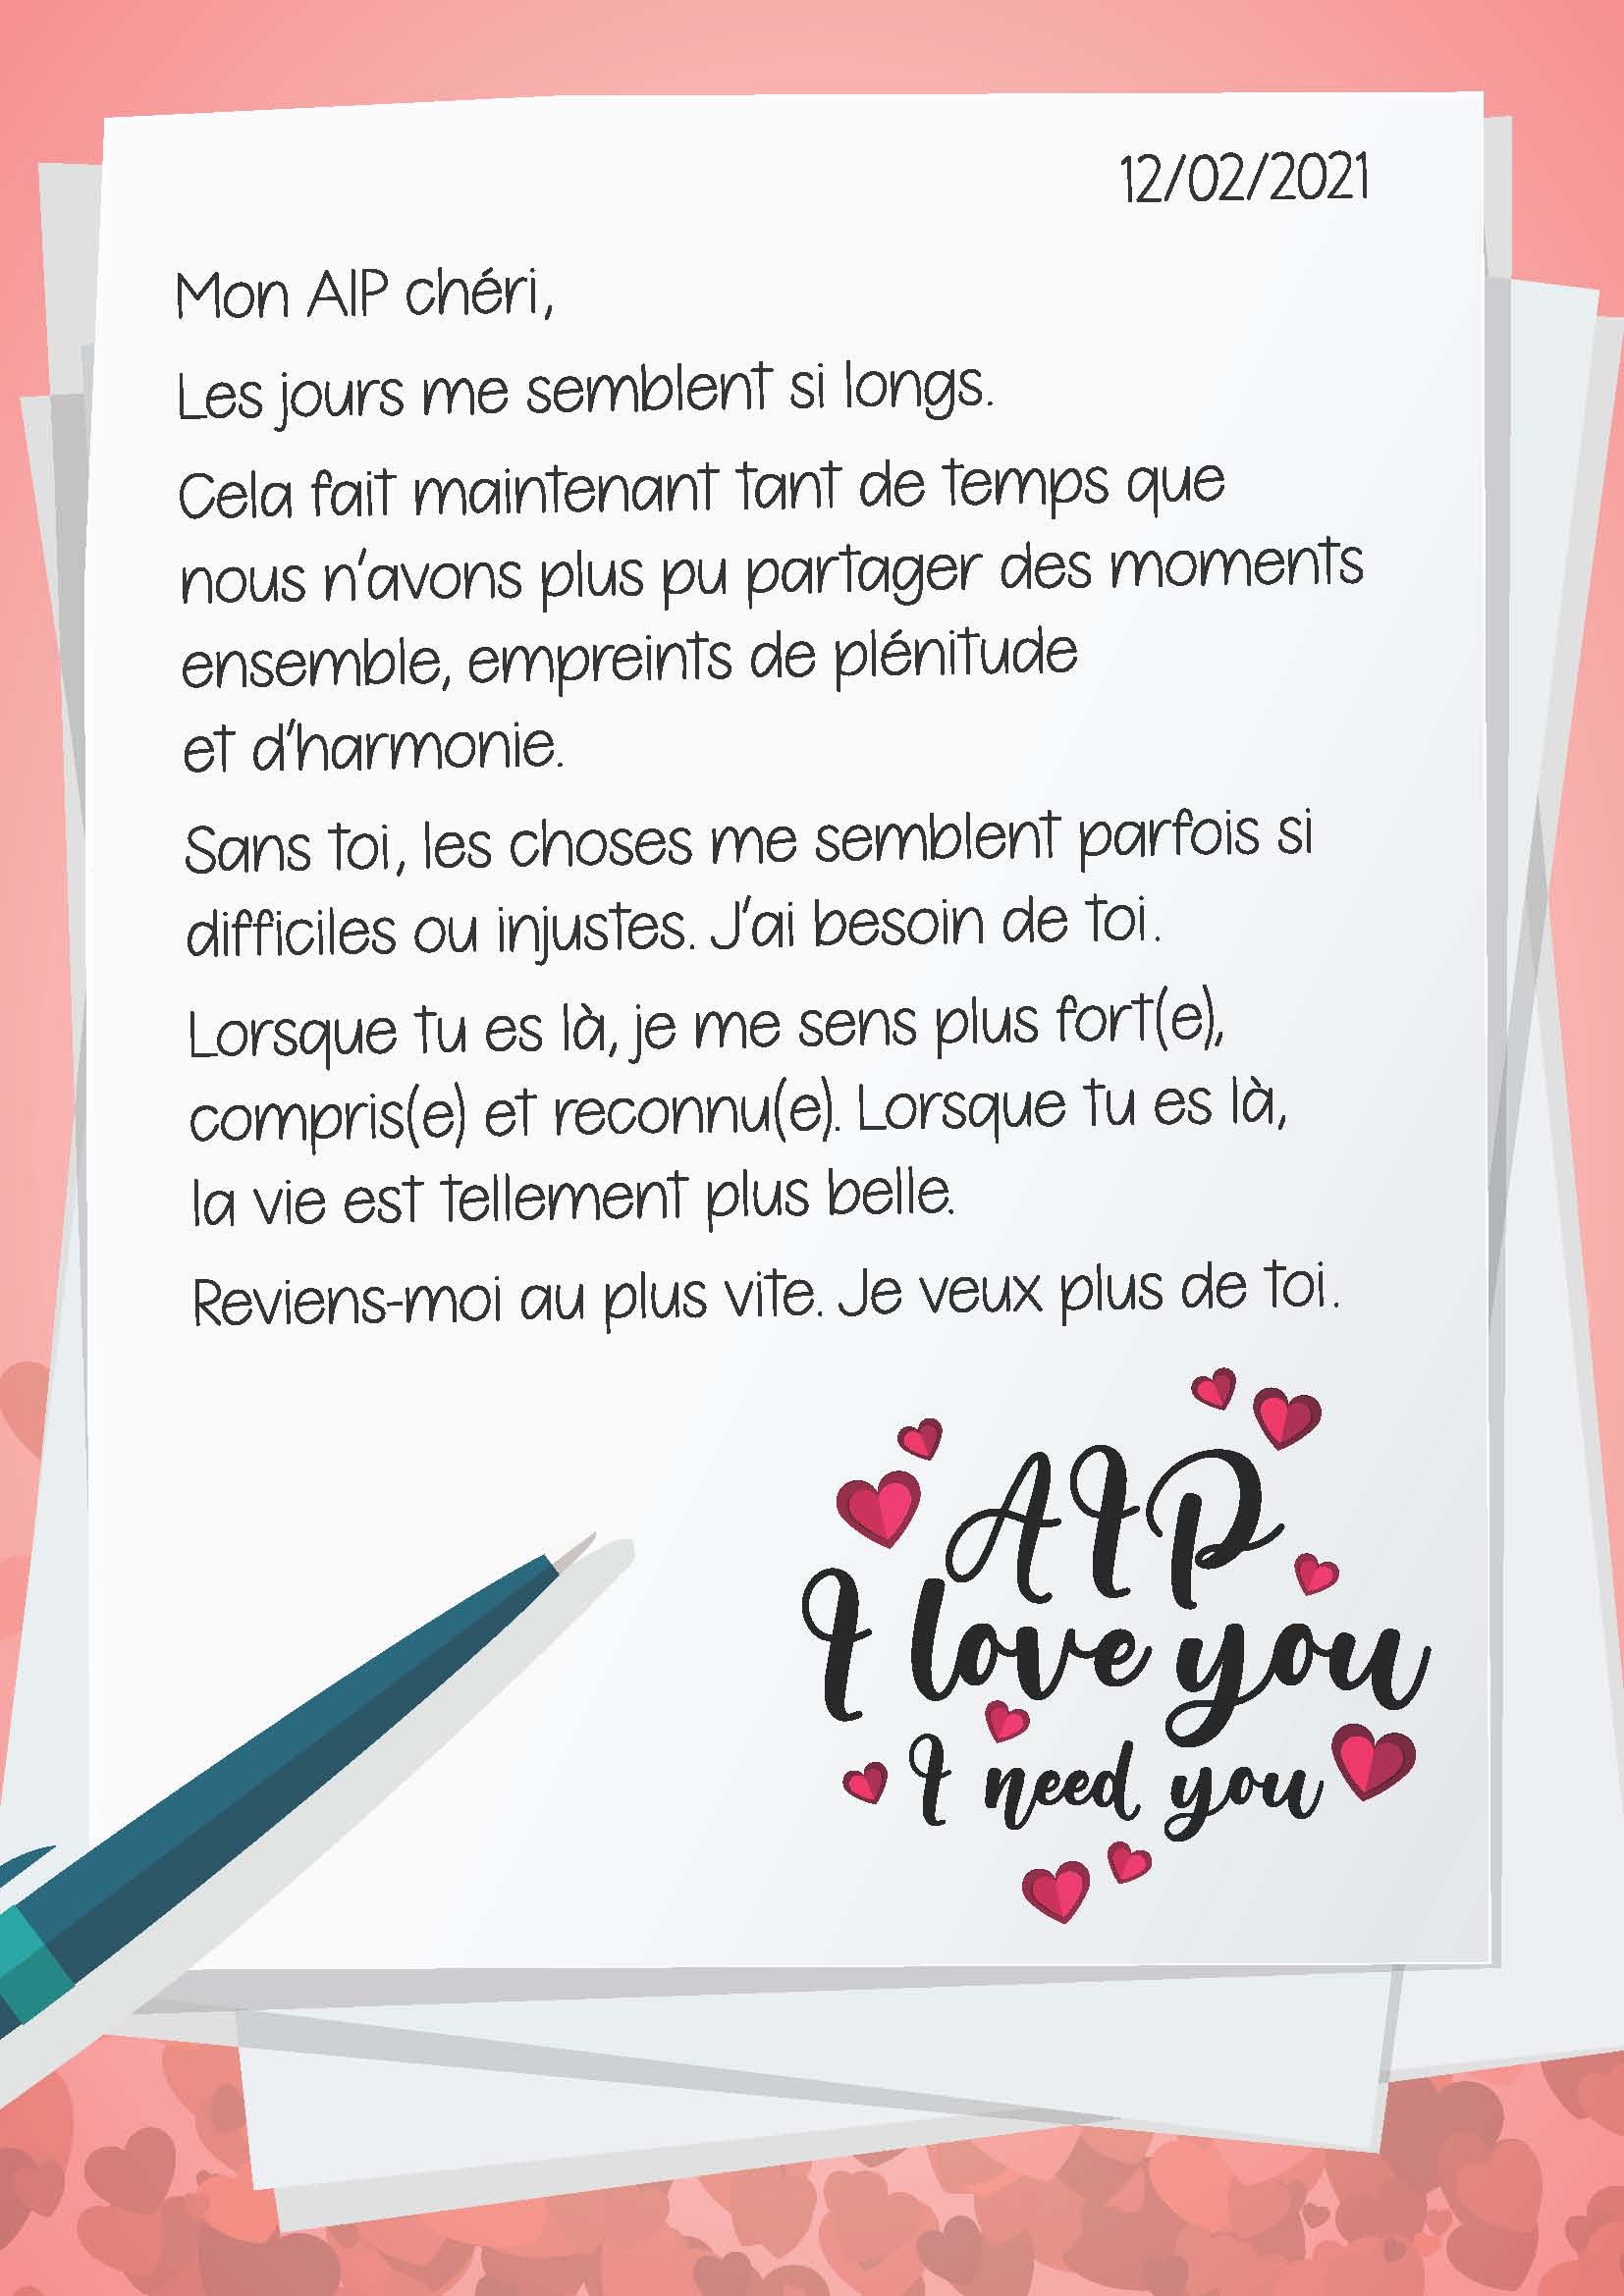 12/02/2021
Mon AIP chéri,
Les jours me semblent si longs.
Cela fait maintenant tant de temps que
nous n'avons plus pu partager des moments
ensemble, empreints de plénitude
et d'harmonie.
Sans toi, les choses me semblent parfois si
difficiles ou injustes. J'ai besoin de toi.
Lorsque tu es là, je me sens plus fort(e),
compris(e) et reconnu(e). Lorsque tu es là,
la vie est tellement plus belle.
Reviens-moi au plus vite. Je veux plus de toi.
AIP
I love you
I need you